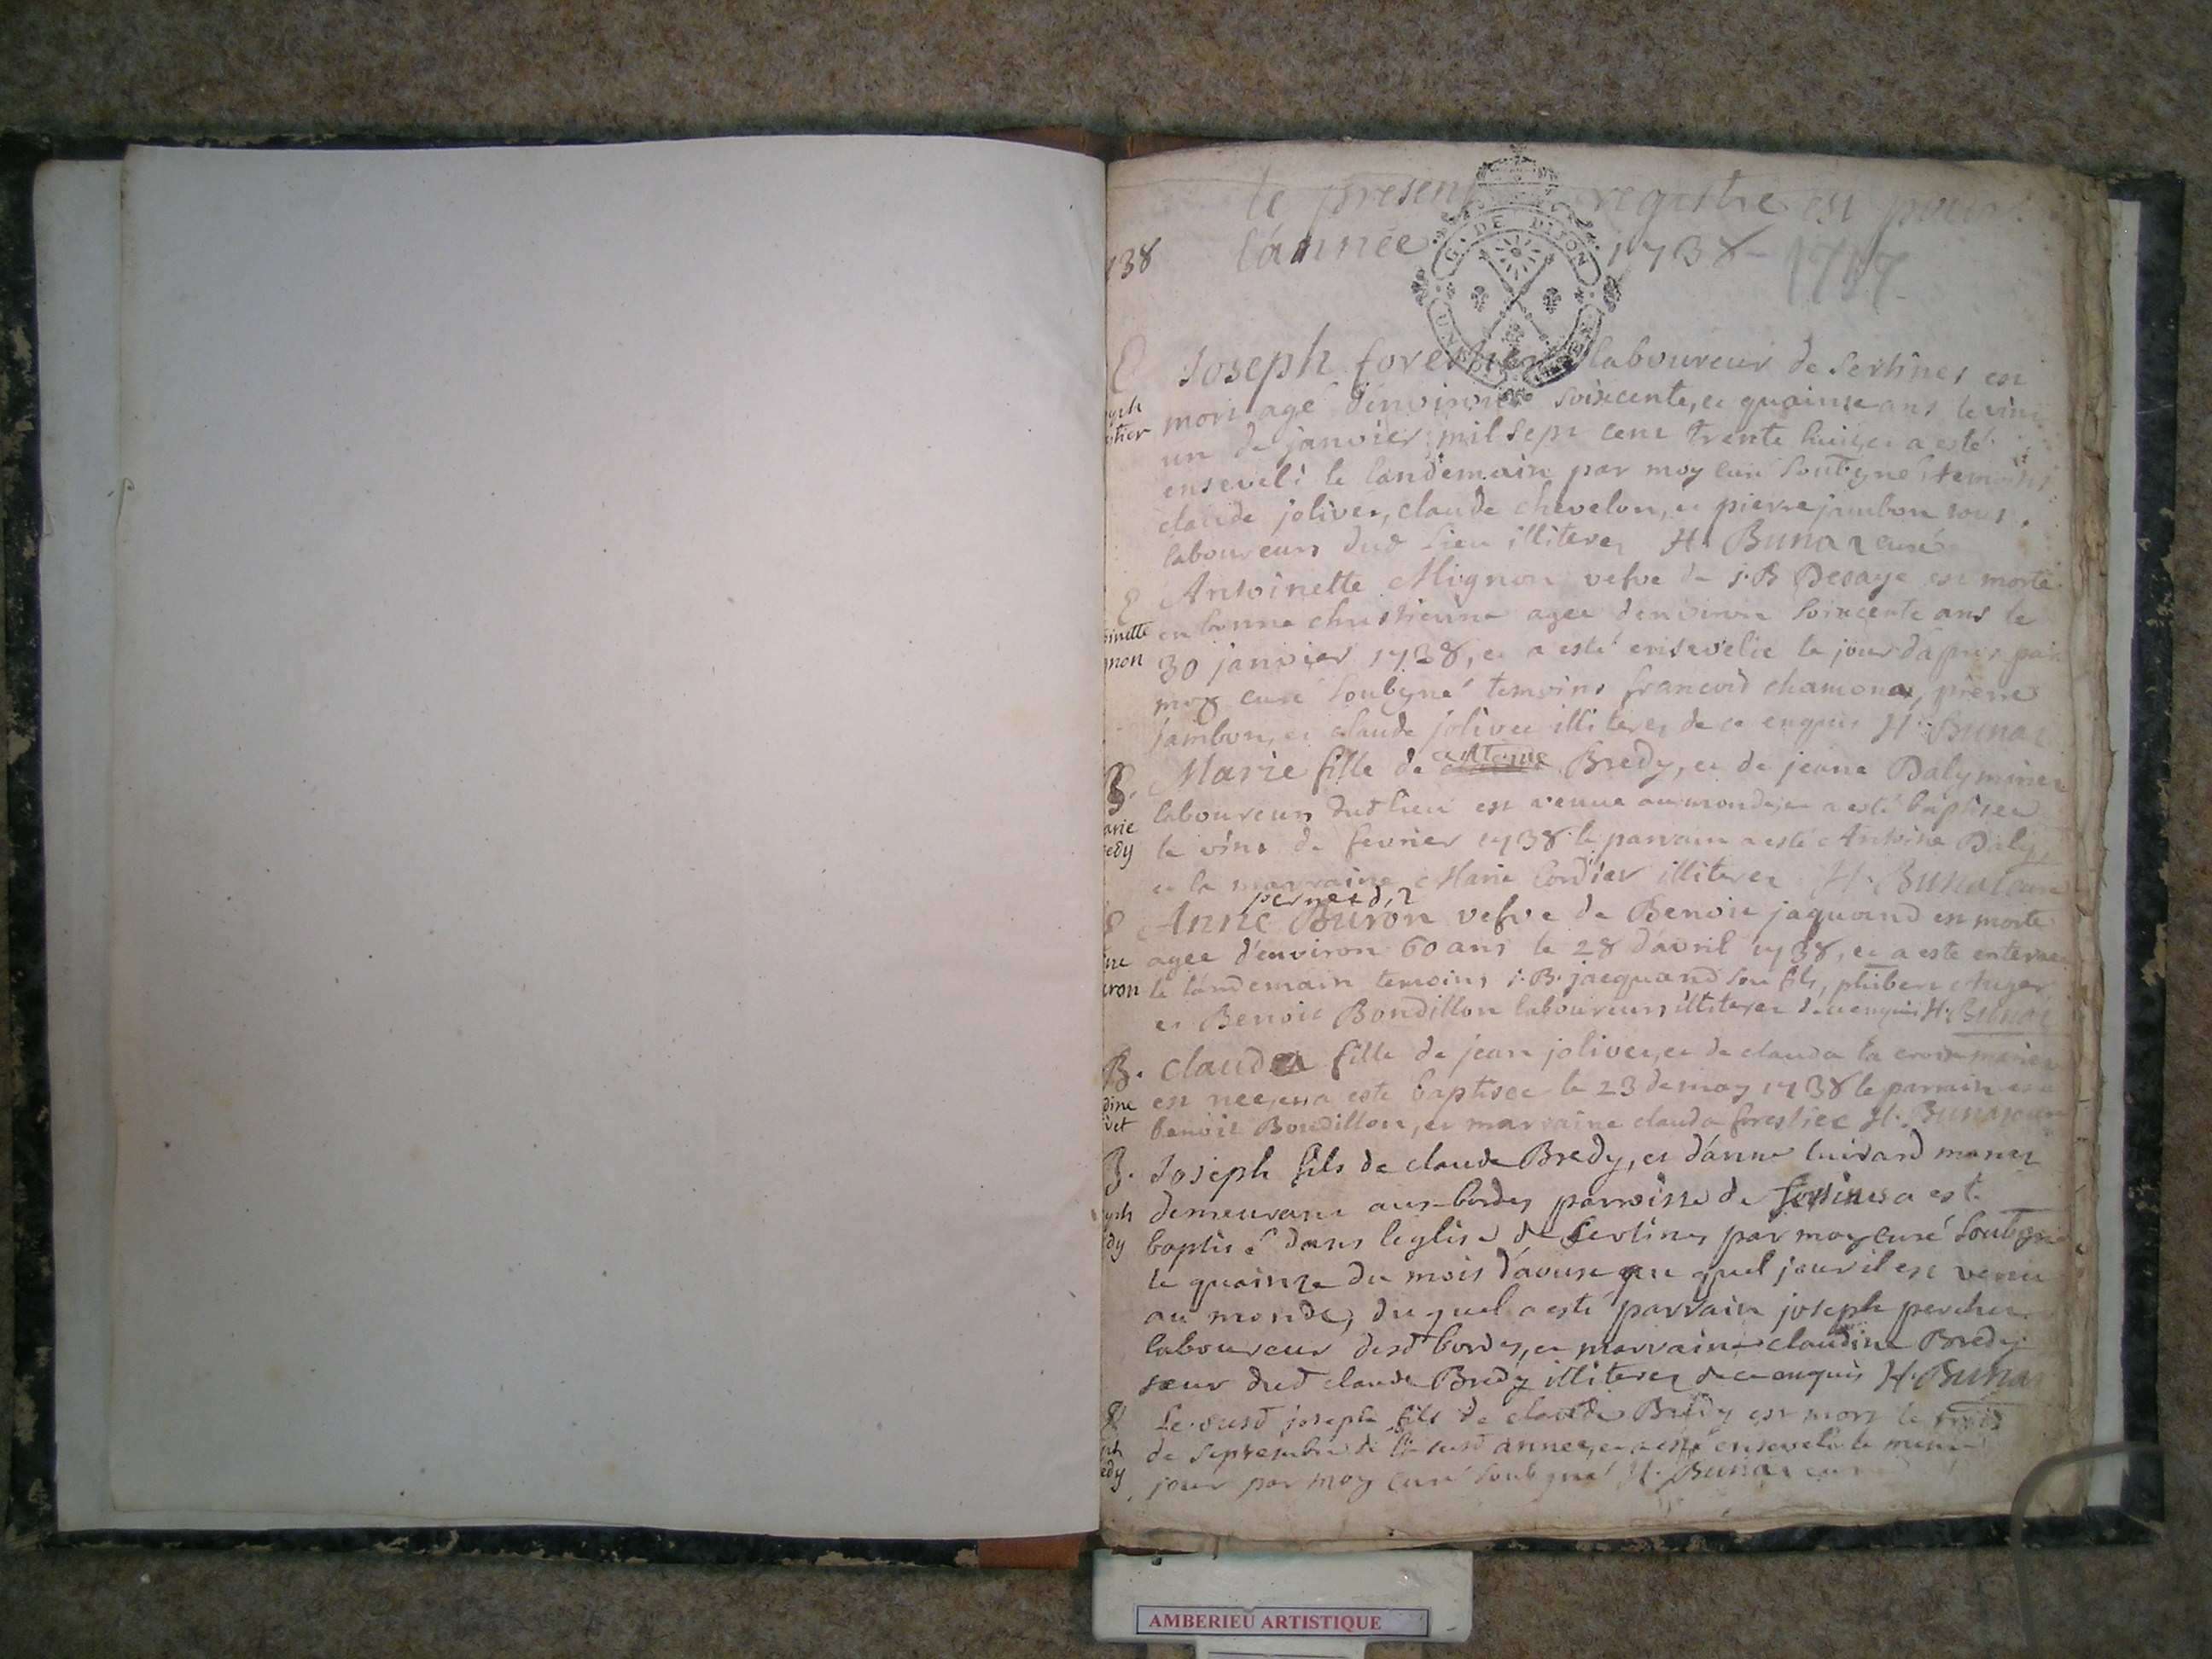 le present registre est pour
l'année 1738 - 1747
138
G. DE DIJON
E Joseph forestier laboureur de Sertines est
mort agé d'environ soixcente, et quainse ans le vint
un de janvier mil sept cent trente huit, et a esté
enseveli le landemain par moy curé soubgne temoins
claude jolivet, claude chevelon, et pierre jambon tous
laboureurs dud lieu illiteres H. Bunaz curé
E Antoinette Mignon vefve de j. B Decaye est morte
en bonne chrestienne agee denviron soixcente ans le
30 janvier 1738, et a esté ensevelie le jour d'apres par
moy curé soubgné temoins francois chamonas, pierre
jambon, et claude jolivet illiteres de ce enquis H. Bunaz
B. Marie fille de antoine Bredy, et de jeane Daly
laboureurs dud lieu est venue au monde, et a esté baptisee
le vint de fevrier 1738 le parrain a esté Antoine Daly
et la marraine Marie Cordier illiteres H. Bunaz curé
E Anne Buron vefve de Benoit jaquand est morte
agee d'environ 60 ans le 28 d'avril 1738, et a esté enterree
le landemain temoins j. B. jacquand son fils, philibert Auger
et Benoit Bondillon laboureurs illiteres de ce enquis H. Bunaz
B. claudea fille de jean jolivet, et de clauda la croix mariez
est nee, et a esté baptisee le 23 de may 1738 le parrain est
benoit Bondillon, et marraine clauda forestier H. Bunaz curé
B. Joseph fils de claude Bredy, et d'anne luisard mariez
demeurant aux bordes parroisse de Sertines a esté
baptisé dans leglise de Sertines par moy curé soubgné
le quainze du mois d'aoust au quel jour il est venu
au monde, du quel a esté parrain joseph percher
laboureur desd bordes, et marraine claudine Bredy
sœur dud claude Bredy illiteres de ce enquis H. Bunaz
E Le susd joseph fils de claude Bredy est mort le trois
de septembre de la susd annee, et a esté enseveli le meme
jour par moy curé soubgné H. Bunaz curé
AMBERIEU ARTISTIQUE